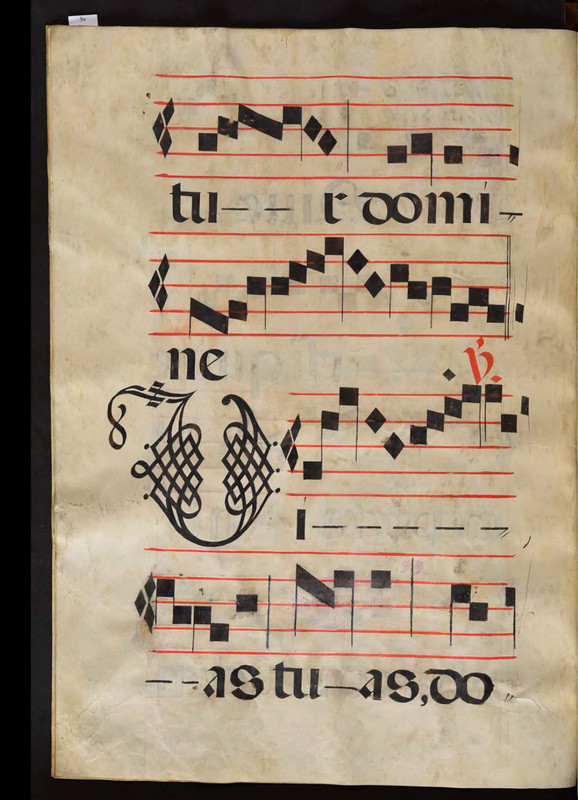 tu—— r domi–
ne
℣.
Vi—————
——as tu—as, do